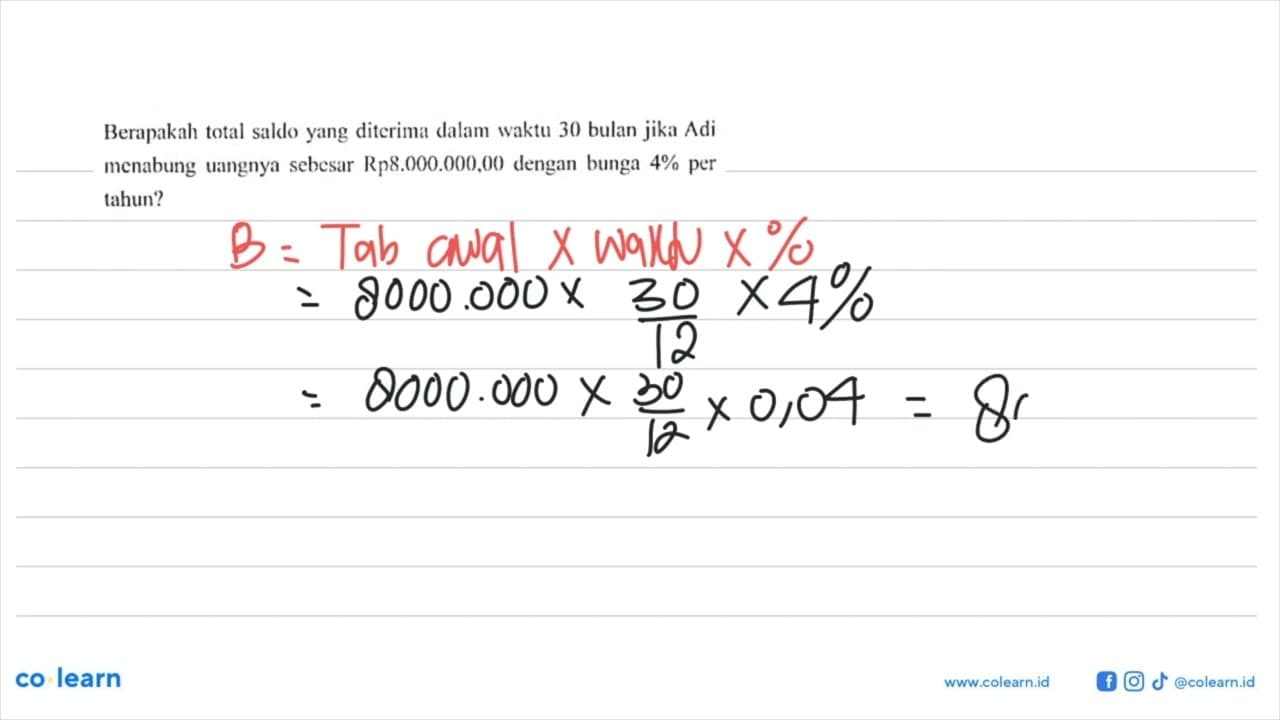 Berapakah total saldo yang diterima dalam waktu 30 bulan jika Adi
menabung uangnya sebesar Rp8.000.000,00 dengan bunga 4% per
tahun?
B = Tab awal x waktu x %
= 8000.000 x 30/12 x 4%
= 8000.000 x 30/12 x 0,04 = 8
co learn
www.colearn.id
@colearn.id